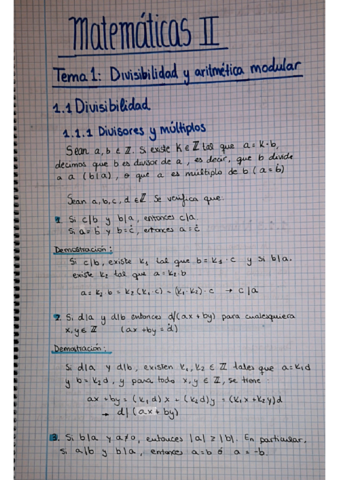 Matemáticas II
Tema 1: Divisibilidad y aritmética modular
1.1 Divisibilidad
1.1.1 Divisores y múltiplos
Sean a, b ∈ ℤ. Si existe K ∈ ℤ tal que a = K·b,
decimos que b es divisor de a, es decir, que b divide
a a (b|a), o que a es múltiplo de b (a = ḃ)
Sean a, b, c, d ∈ ℤ. Se verifica que:
1. Si c|b y b|a, entonces c|a.
Si a = ḃ y b = ċ, entonces a = ċ
Demostración:
Si c|b, existe k₁ tal que b = k₁·c y si b|a,
existe k₂ tal que a = k₂·b
a = k₂·b = k₂(k₁·c) = (k₁·k₂)·c → c|a
2. Si d|a y d|b entonces d|(ax+by) para cualesquiera
x, y ∈ ℤ (ax + by = ḋ)
Demostración:
Si d|a y d|b, existen k₁, k₂ ∈ ℤ tales que a = k₁d
y b = k₂d, y para todo x, y ∈ ℤ, se tiene:
ax + by = (k₁d)x + (k₂d)y = (k₁x + k₂y)d
→ d|(ax+by)
3. Si b|a y a≠0, entonces |a| ≥ |b|. En particular,
si a|b y b|a, entonces a = b ó a = -b.